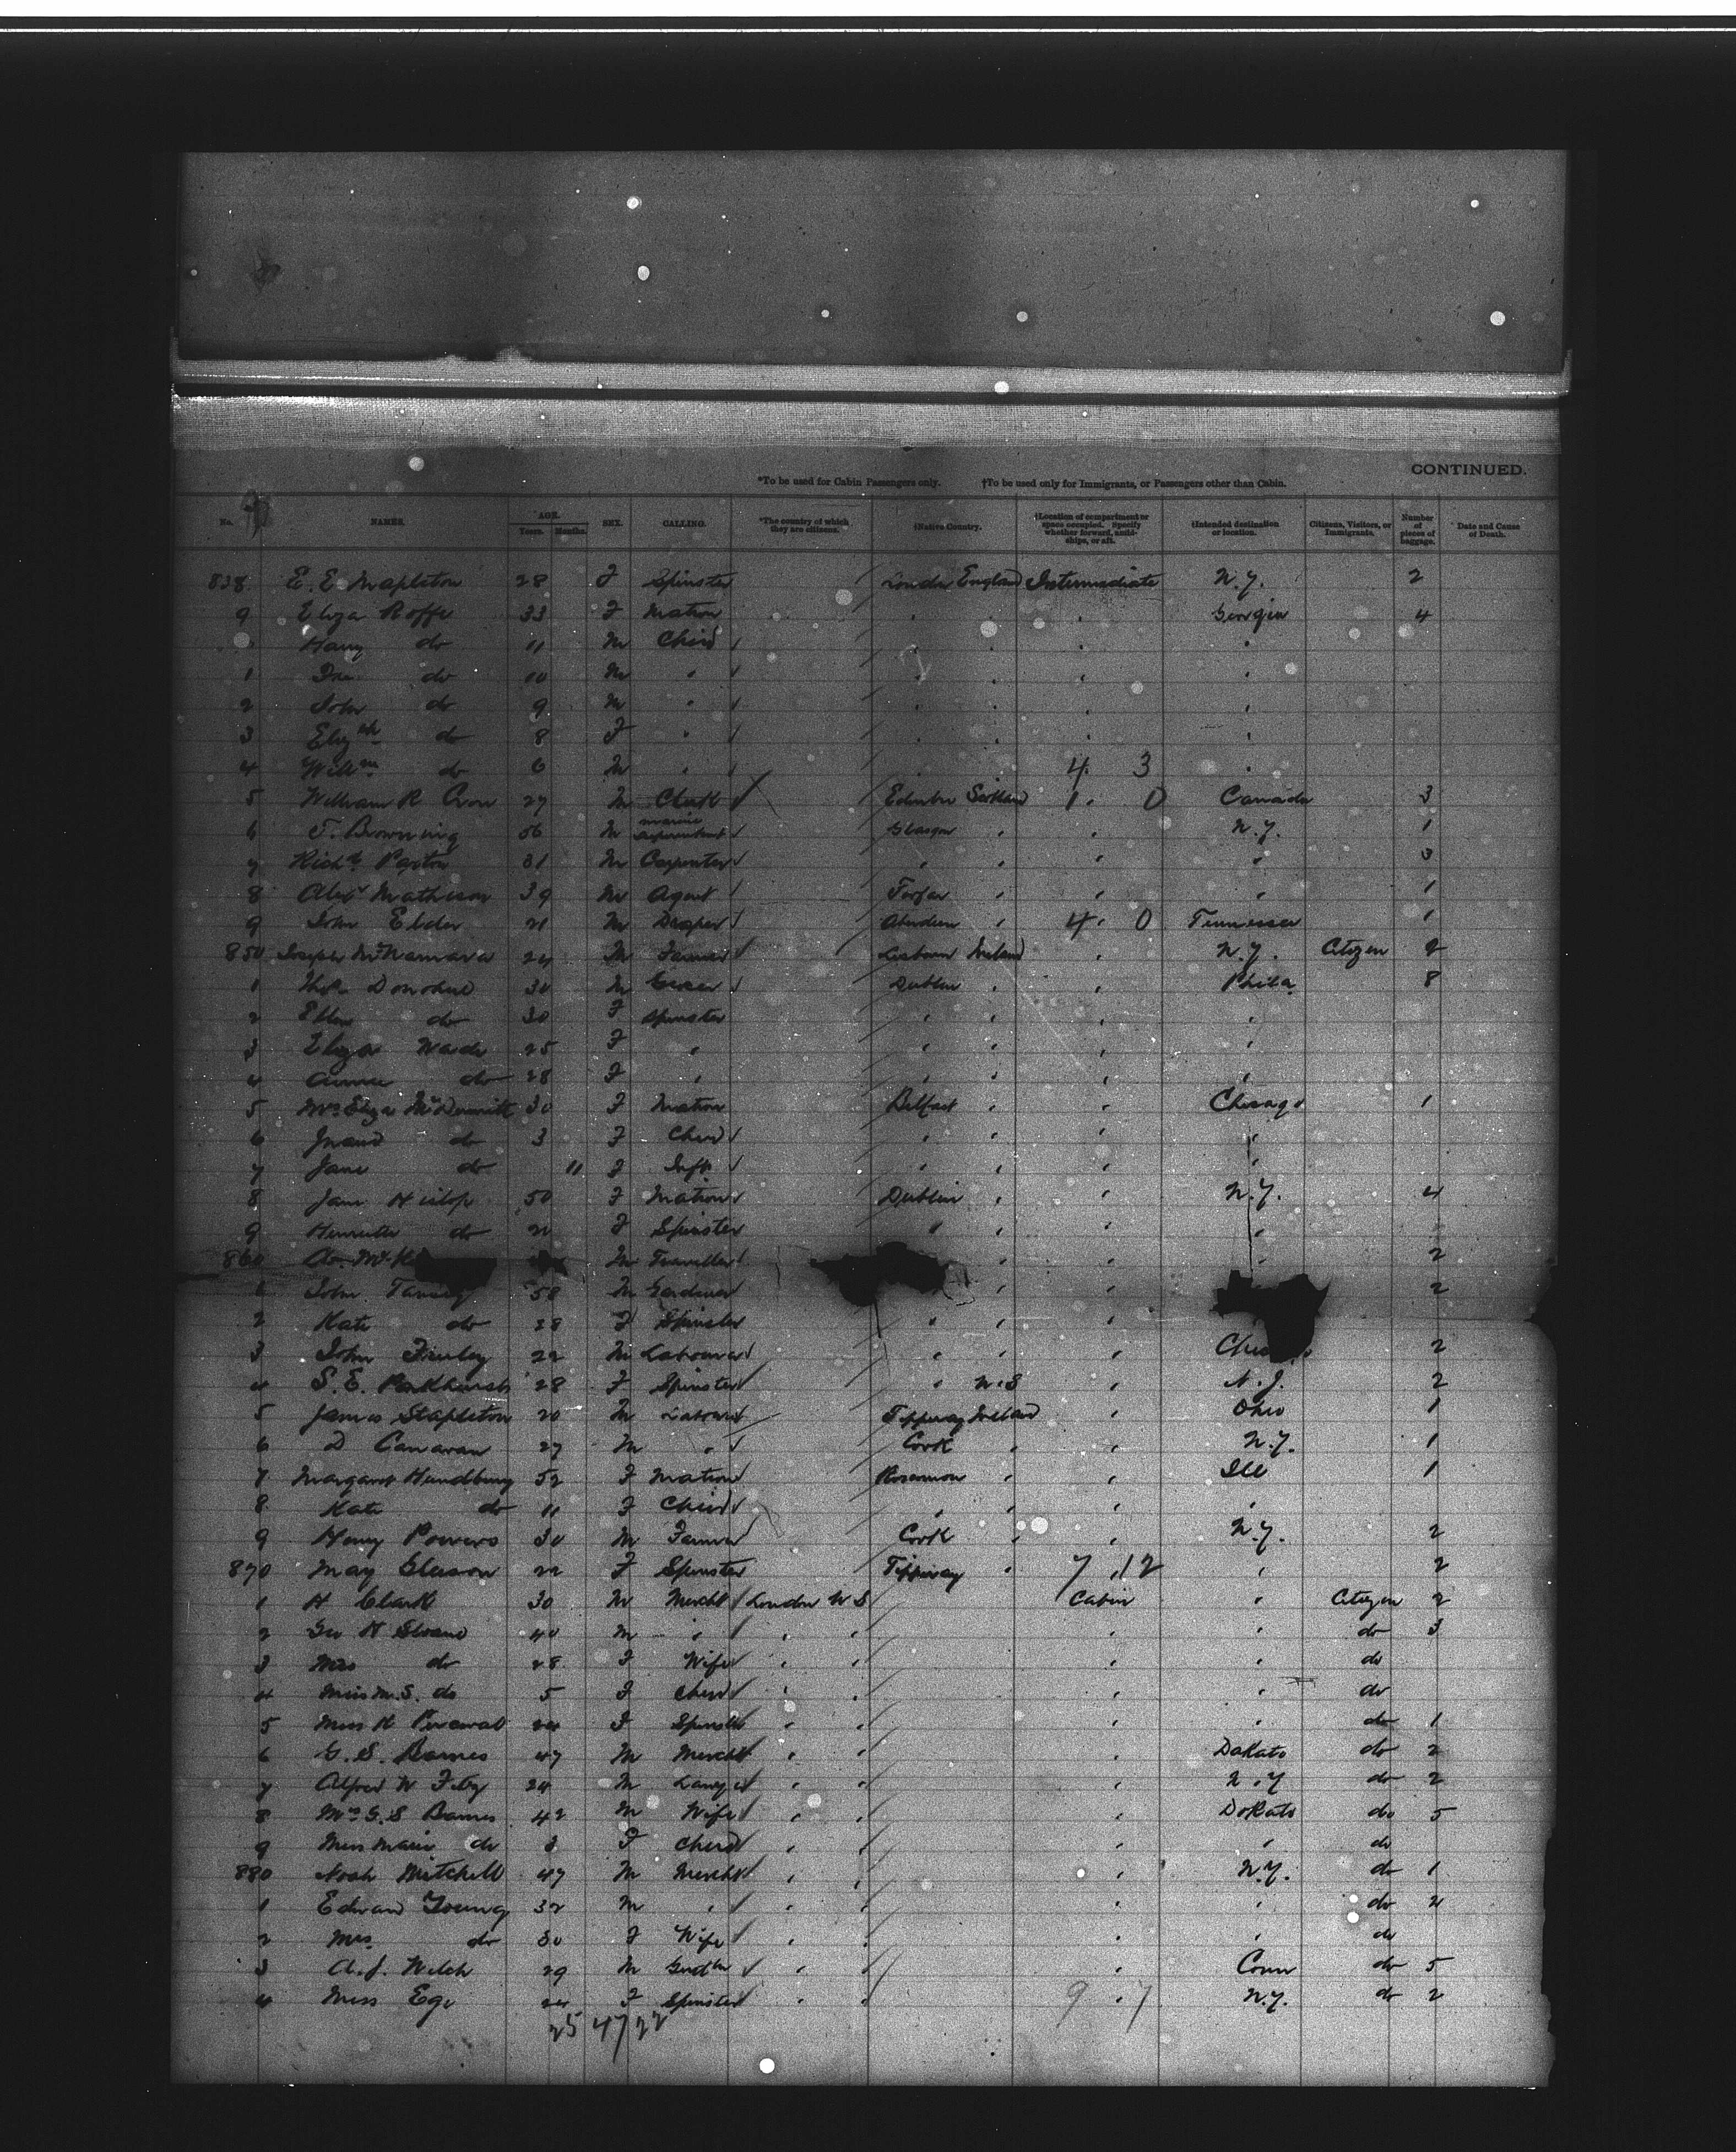 CONTINUED.
*To be used for Cabin Passengers only. †To be used only for Immigrants, or Passengers other than Cabin.
No. NAMES. AGE. Years. Months. SEX. CALLING. *The country of which they are citizens. †Native Country. †Location of compartment or space occupied. Specify whether forward, amidships, or aft. †Intended destination or location. Citizens, Visitors, or Immigrants. Number of pieces of baggage. Date and Cause of Death.
838 E. E. Mapleton 28 F Spinster London England Intermediate N.Y. 2
9 Eliza Roffe 33 F Matron " " Georgia 4
Harry do 11 M Child " " "
1 do 10 M " " " "
2 John do 9 M " " " "
3 Elizth do 8 F " " " "
4 Willm do 6 M " " 4 3 "
5 William R Crow 27 M Clerk Edinbro Scotland 1 0 Canada 3
6 T. Browning 56 M Marine Glasgow " " N.Y. 1
7 Richd Paxton 31 M Carpenter " " " " 3
8 Alexr Mathieson 39 M Agent Forfar " " " 1
9 John Elder 21 M Draper Aberdeen " 4 0 Tennessee 1
850 Joseph McNamara 24 M Farmer Lisburn Ireland " N.Y. Citizen 2
1 Thos Donohue 30 M Grocer Dublin " " Phila. 8
2 Ellen do 30 F Spinster " " " "
3 Eliza Wade 25 F " " " " "
4 Annie do 28 F " " " " "
5 Mrs Eliza McDermitt 30 F Matron Belfast " " Chicago 1
6 do 3 F Child " " " "
7 Jane do 11 F Inft " " " "
8 Jane Hislop 50 F Matron Dublin " " N.Y. 4
9 Henrietta do 22 F Spinster " " " "
860 M Traveller " " 2
1 John 58 M Gardener " " 2
2 Kate do 28 F Spinster " " "
3 John Finley 22 M Labourer " " " 2
4 S. E. Parkhurst 28 F Spinster " U.S " N.J. 2
5 James Stapleton 20 M Labourer Tipperay Ireland " Ohio 1
6 D Canavan 27 M " Cork " " N.Y. 1
7 Margaret Hundbury 52 F Matron " " Ill 1
8 Kate do 11 F Child " " " "
9 Henry Powers 30 M Farmer Cork " " N.Y. 2
870 May Gleeson 22 F Spinster Tipperay " 7 12 " 2
1 H Clark 30 M Mercht London U S Cabin " Citizen 2
2 Geo H Sloane 40 M " " " " " do 3
3 Mrs do 28 F Wife " " " " do
4 Miss M. S. do 5 F Child " " " " do
5 Miss H Perceval 24 F Spinster " " " " do 1
6 G. S. Barnes 47 M Mercht " " " Dakato do 2
7 Alfred W 24 M Lawyer " " " N.Y do 2
8 Mrs G. S Barnes 42 M Wife " " " Dakato do 5
9 Miss Marie do 3 F Child " " " " do
880 Noah Mitchell 47 M Mercht " " " N.Y. do 1
1 Edward Young 32 M " " " " " do 4
2 Mrs. do 30 F Wife " " " " do
3 A. J. Welch 29 M Gentn " " " Conn do 5
4 Miss Ege 24 F Spinster " " 9 7 N.Y. do 2
25 47 22